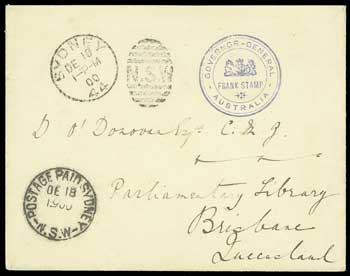 SYDNEY
DE 18
1-PM
00
44
N.S.W
GOVERNOR-GENERAL
FRANK STAMP
AUSTRALIA
D O'Donovan Esq. C.M.G.
POSTAGE PAID SYDNEY
DE 18
1900
N.S.W
Parliamentary Library
Brisbane
Queensland